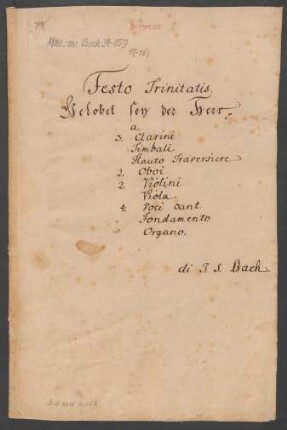 Mus. ms. Bach St 153
Festo Trinitatis
Gelobet sey der Herr.
a.
3. Clarini
Timbali
Flauto Traversiere
2. Oboi
2 Violini
Viola
4. Voci Cant
Fondamento
Organo.
di J. S. Bach